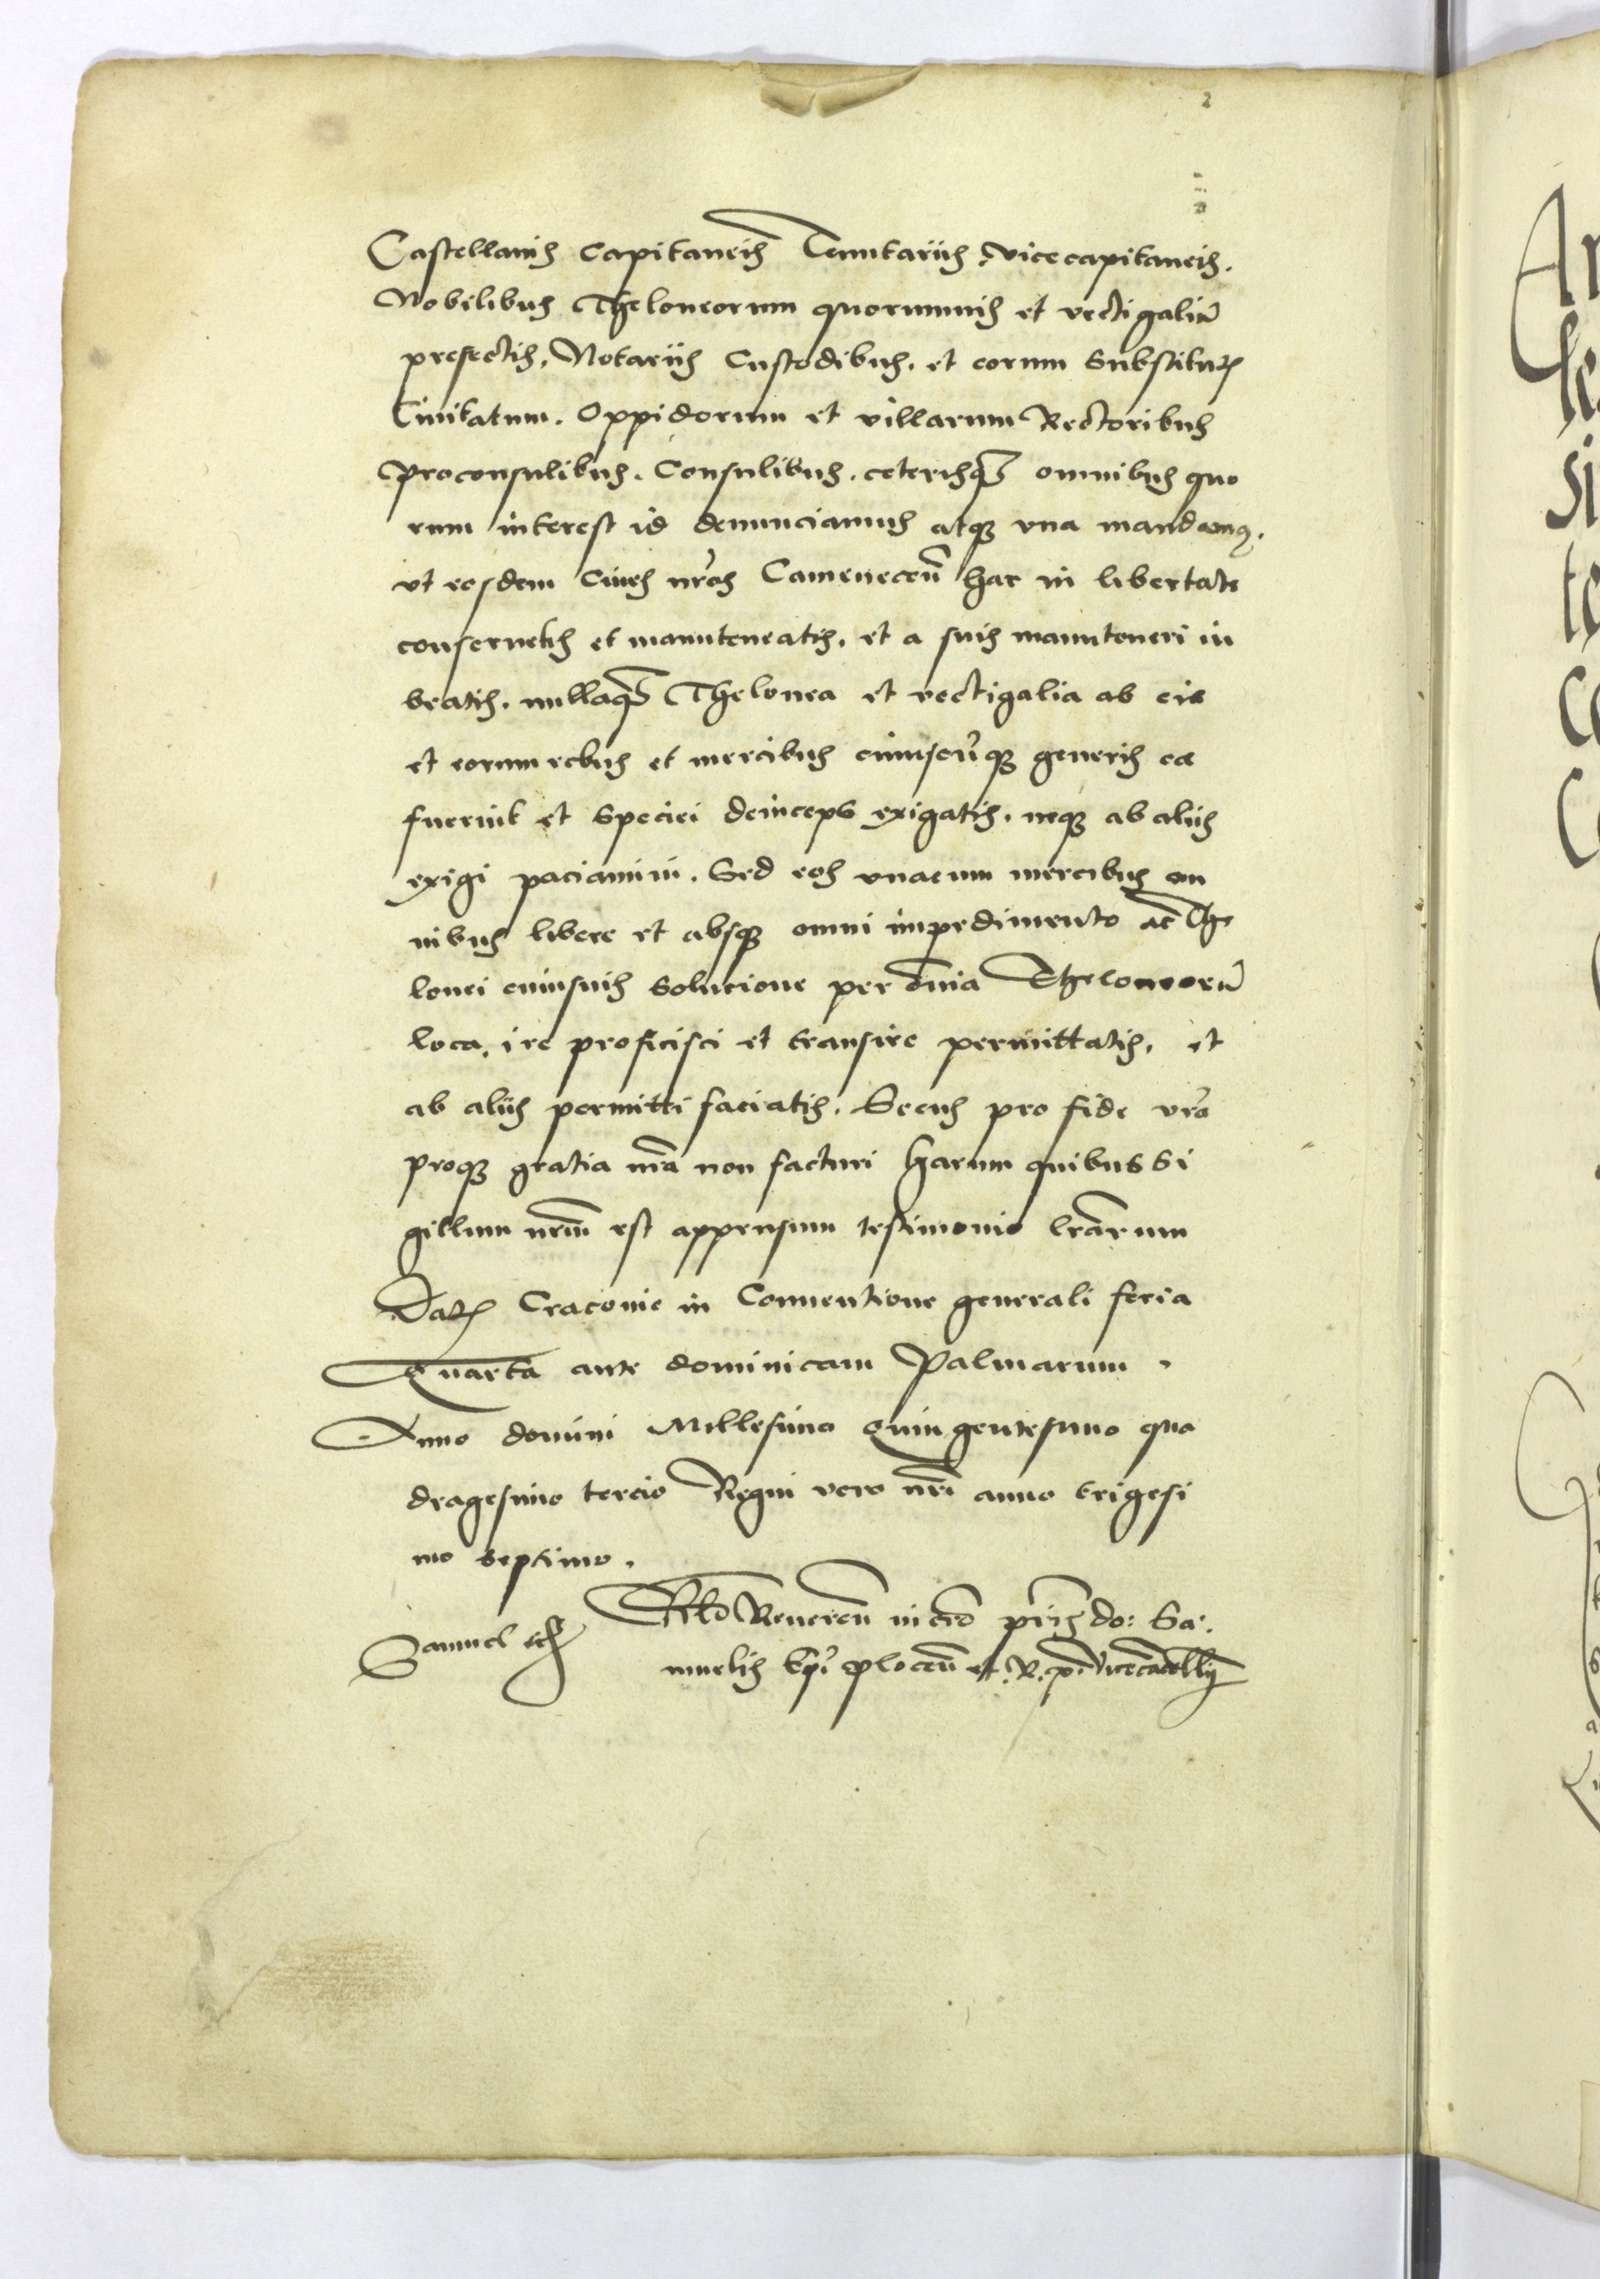 Castellanis Capitaneis Tenutariis, Vicecapitaneis.
Nobilibus Theloneorum quorumuis et vectigaliũ
prefectis, Notariis Custodibus, et eorum Substitut(is)
Ciuitatum. Oppidorum et villarum Rectoribus
Proconsulibus. Consulibus. ceterisq(ue) omnibus quo
rum interest id denunciamus atq(ue) vna mandamus.
vt eosdem Ciues nr̃os Camenecen̄ hac in libertate
conseruetis et manuteneatis, et a suis manuteneri iu
beatis. nullaq(ue) Thelonea et vectigalia ab eis
et eorum rebus et mercibus cuiuscũq(ue) generis ea
fuerint et speciei deinceps exigatis. neq(ue) ab aliis
exigi paciamini. Sed eos vnacum mercibus om
nibus libere et absq(ue) omni impedimento ac The
lonei cuiusuis solucione per om̄ia Theloneorũ
loca, ire proficisci et transire permittatis, et
ab aliis permitti faciatis. Secus pro fide vr̃a
proq(ue) gratia nr̃a non facturi harum quibus Si
gillum nr̃um est appensum testimonio lr̃arum
Dat(um) Cracouie in Conuentione generali feria
Quarta ante dominicam Palmarum.
Anno domini Millesimo Quingentesimo qua
dragesimo tercio Regni vero nr̃i anno trigesi
mo septimo.
Samuel
Rel̄o Reueren̄ in Cr̄o pr̃is do: Sa:
muelis Ep̃i plocen̄ et R. p. Vicecãcellɥ